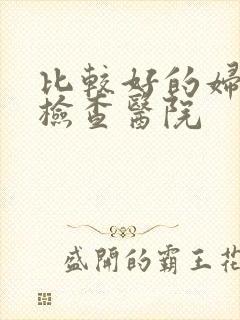 比較好的婦
檢查醫院
盛開的霸王花